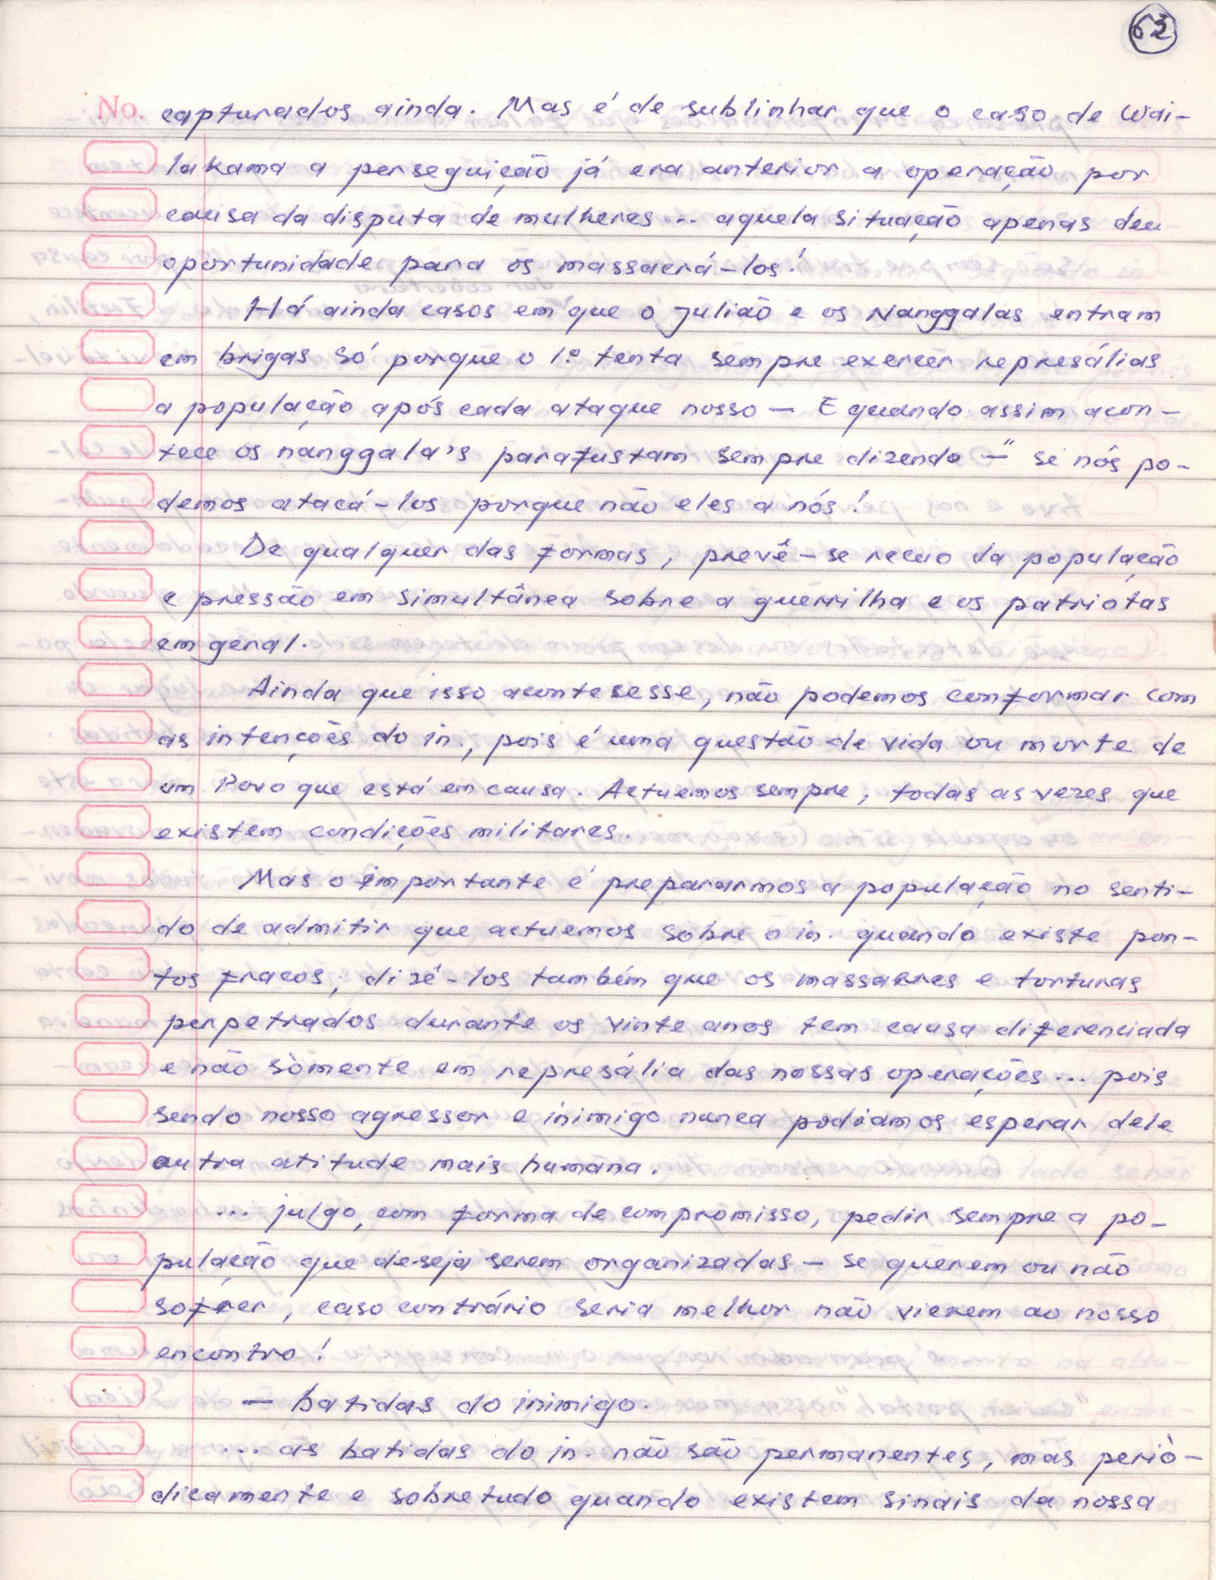 63
No. capturados ainda. Mas é de sublinhar que o caso de Wai-
lakama a perseguição já era anterior a operação por
causa da disputa de mulheres... aquela situação apenas deu
oportunidade para os massacrá-los!
Há ainda casos em que o Julião e os Nanggalas entram
em brigas só porque o 1.º tenta sempre exercer represálias
a população após cada ataque nosso — E quando assim acon-
tece os nanggala's parafustam sempre dizendo — " se nós po-
demos atacá-los porque não eles a nós!
De qualquer das formas, prevê-se recuo da população
e pressão em simultânea sobre a guerrilha e os patriotas
em geral.
Ainda que isso acontesesse, não podemos conformar com
as intenções do in., pois é uma questão de vida ou morte de
um Povo que está em causa. Actuemos sempre, todas as vezes que
existem condições militares.
Mas o importante é prepararmos a população no senti-
do de admitir que actuemos sobre o in. quando existe pon-
tos fracos, dizê-los também que os massacres e torturas
perpetrados durante os vinte anos tem causa diferenciada
e não sòmente em represália das nossas operações... pois
sendo nosso agressor e inimigo nunca podiamos esperar dele
outra atitude mais humana.
... julgo, com forma de compromisso, pedir sempre a po-
pulação que deseja serem organizadas — se querem ou não
sofrer, caso contrário seria melhor não vierem ao nosso
encontro!
— batidas do inimigo.
... as batidas do in. não são permanentes, mas perió-
dicamente e sobretudo quando existem sinais da nossa